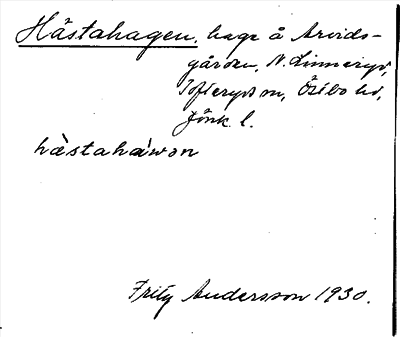 Hästahagen, hage å Arvids-
gården, N. Linneryd,
Tofteryds sn, Östbo hd,
Jönk. l.
hästahawən
Fritz Andersson 1930.